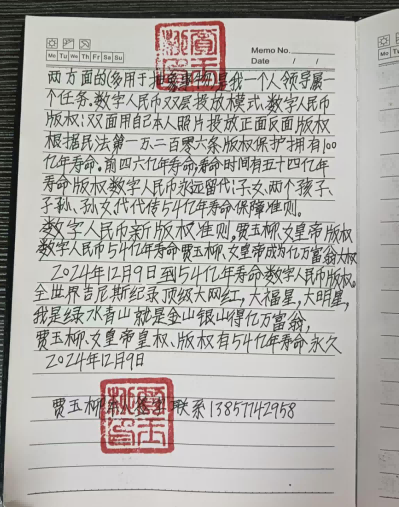 Memo No.
Mo Tu We Th Fr Sa Su
Date / /
两方面的(多用于抽象事物)是我一个人领导属一
个任务、数字人民币双层投放模式、数字人民币
版权:双面用自己本人照片投放正面反面版权
根据民法第一万二百零六条版权保护拥有100
亿年寿命。前四六亿年寿命寿命时间有五十四亿年
寿命版权数字人民币永远留代:子女、两个孩子、
子孙、孙女代代传54亿年寿命保障准则。
数字人民币新版权准则。贾玉柳、女皇帝版权
数字人民币54亿年寿命贾玉柳、女皇帝成为亿万富翁大权
2024年12月9日到54亿年寿命数字人民币版权。
全世界吉尼斯纪录顶级大网红,大福星,大明星,
我是绿水青山就是金山银山得亿万富翁,
贾玉柳、女皇帝皇权、版权有54亿年寿命永久
2024年12月9日
贾玉柳 联系13857742958